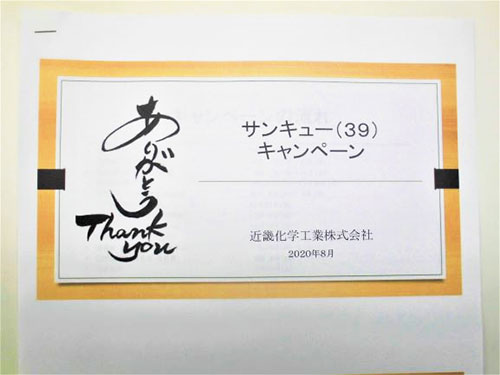 ありがとう
Thank
you
サンキュー(39)
キャンペーン
近畿化学工業株式会社
2020年8月